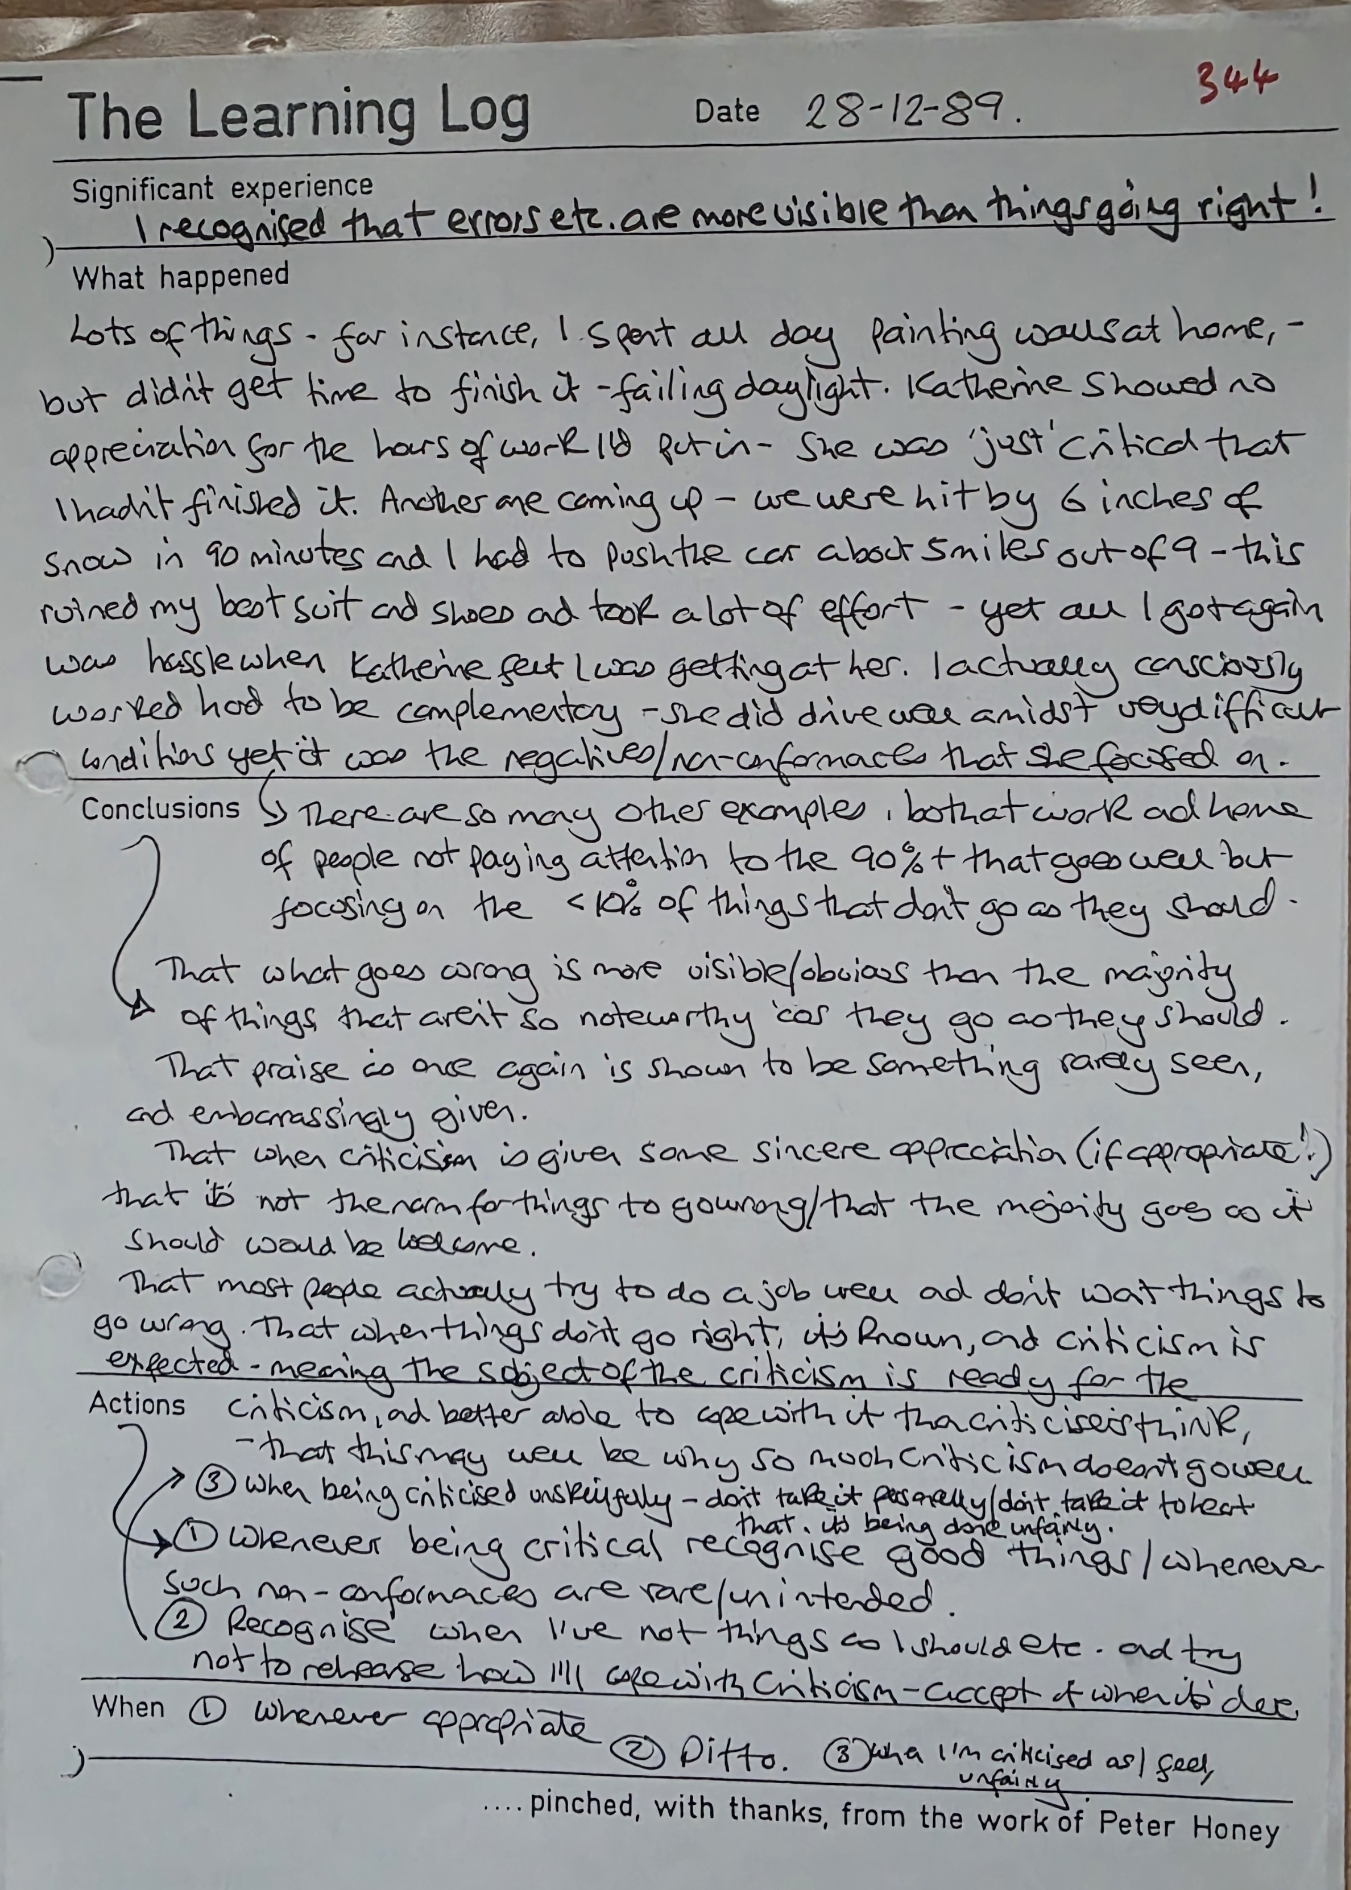 344
The Learning Log Date 28-12-89.
Significant experience
I recognised that errors etc. are more visible than things going right!
What happened
Lots of things - for instance, I spent all day painting walls at home, -
but didn't get time to finish it - failing daylight. Katherine showed no
appreciation for the hours of work I'd put in - She was 'just' critical that
I hadn't finished it. Another one coming up - we were hit by 6 inches of
snow in 90 minutes and I had to push the car about 5 miles out of 9 - this
ruined my best suit and shoes and took a lot of effort - yet all I got again
was hassle when Katherine felt I was getting at her. I actually consciously
worked hard to be complementary - she did drive well amidst very difficult
conditions yet it was the negatives/non-conformances that she focused on.
Conclusions There are so many other examples, both at work and home
of people not paying attention to the 90%+ that goes well but
focusing on the <10% of things that don't go as they should.
That what goes wrong is more visible/obvious than the majority
of things that aren't so noteworthy 'cos they go as they should.
That praise is once again is shown to be something rarely seen,
and embarrassingly given.
That when criticism is given some sincere appreciation (if appropriate!)
that it's not the norm for things to go wrong/that the majority goes as it
should would be welcome.
That most people actually try to do a job well and don't want things to
go wrong. That when things don't go right, it's known, and criticism is
expected - meaning the subject of the criticism is ready for the
Actions criticism, and better able to cope with it than criticisers think,
- that this may well be why so much criticism doesn't go well
③ When being criticised unskilfully - don't take it personally/don't take it to heart
that it's being done unfairly.
① Whenever being critical recognise good things/whenever
such non-conformances are rare/unintended.
② Recognise when I've not things as I should etc. and try
not to rehearse how I'll cope with criticism - accept it when it's due
When ① whenever appropriate
② Ditto. ③ when I'm criticised as I feel,
unfairly
.... pinched, with thanks, from the work of Peter Honey